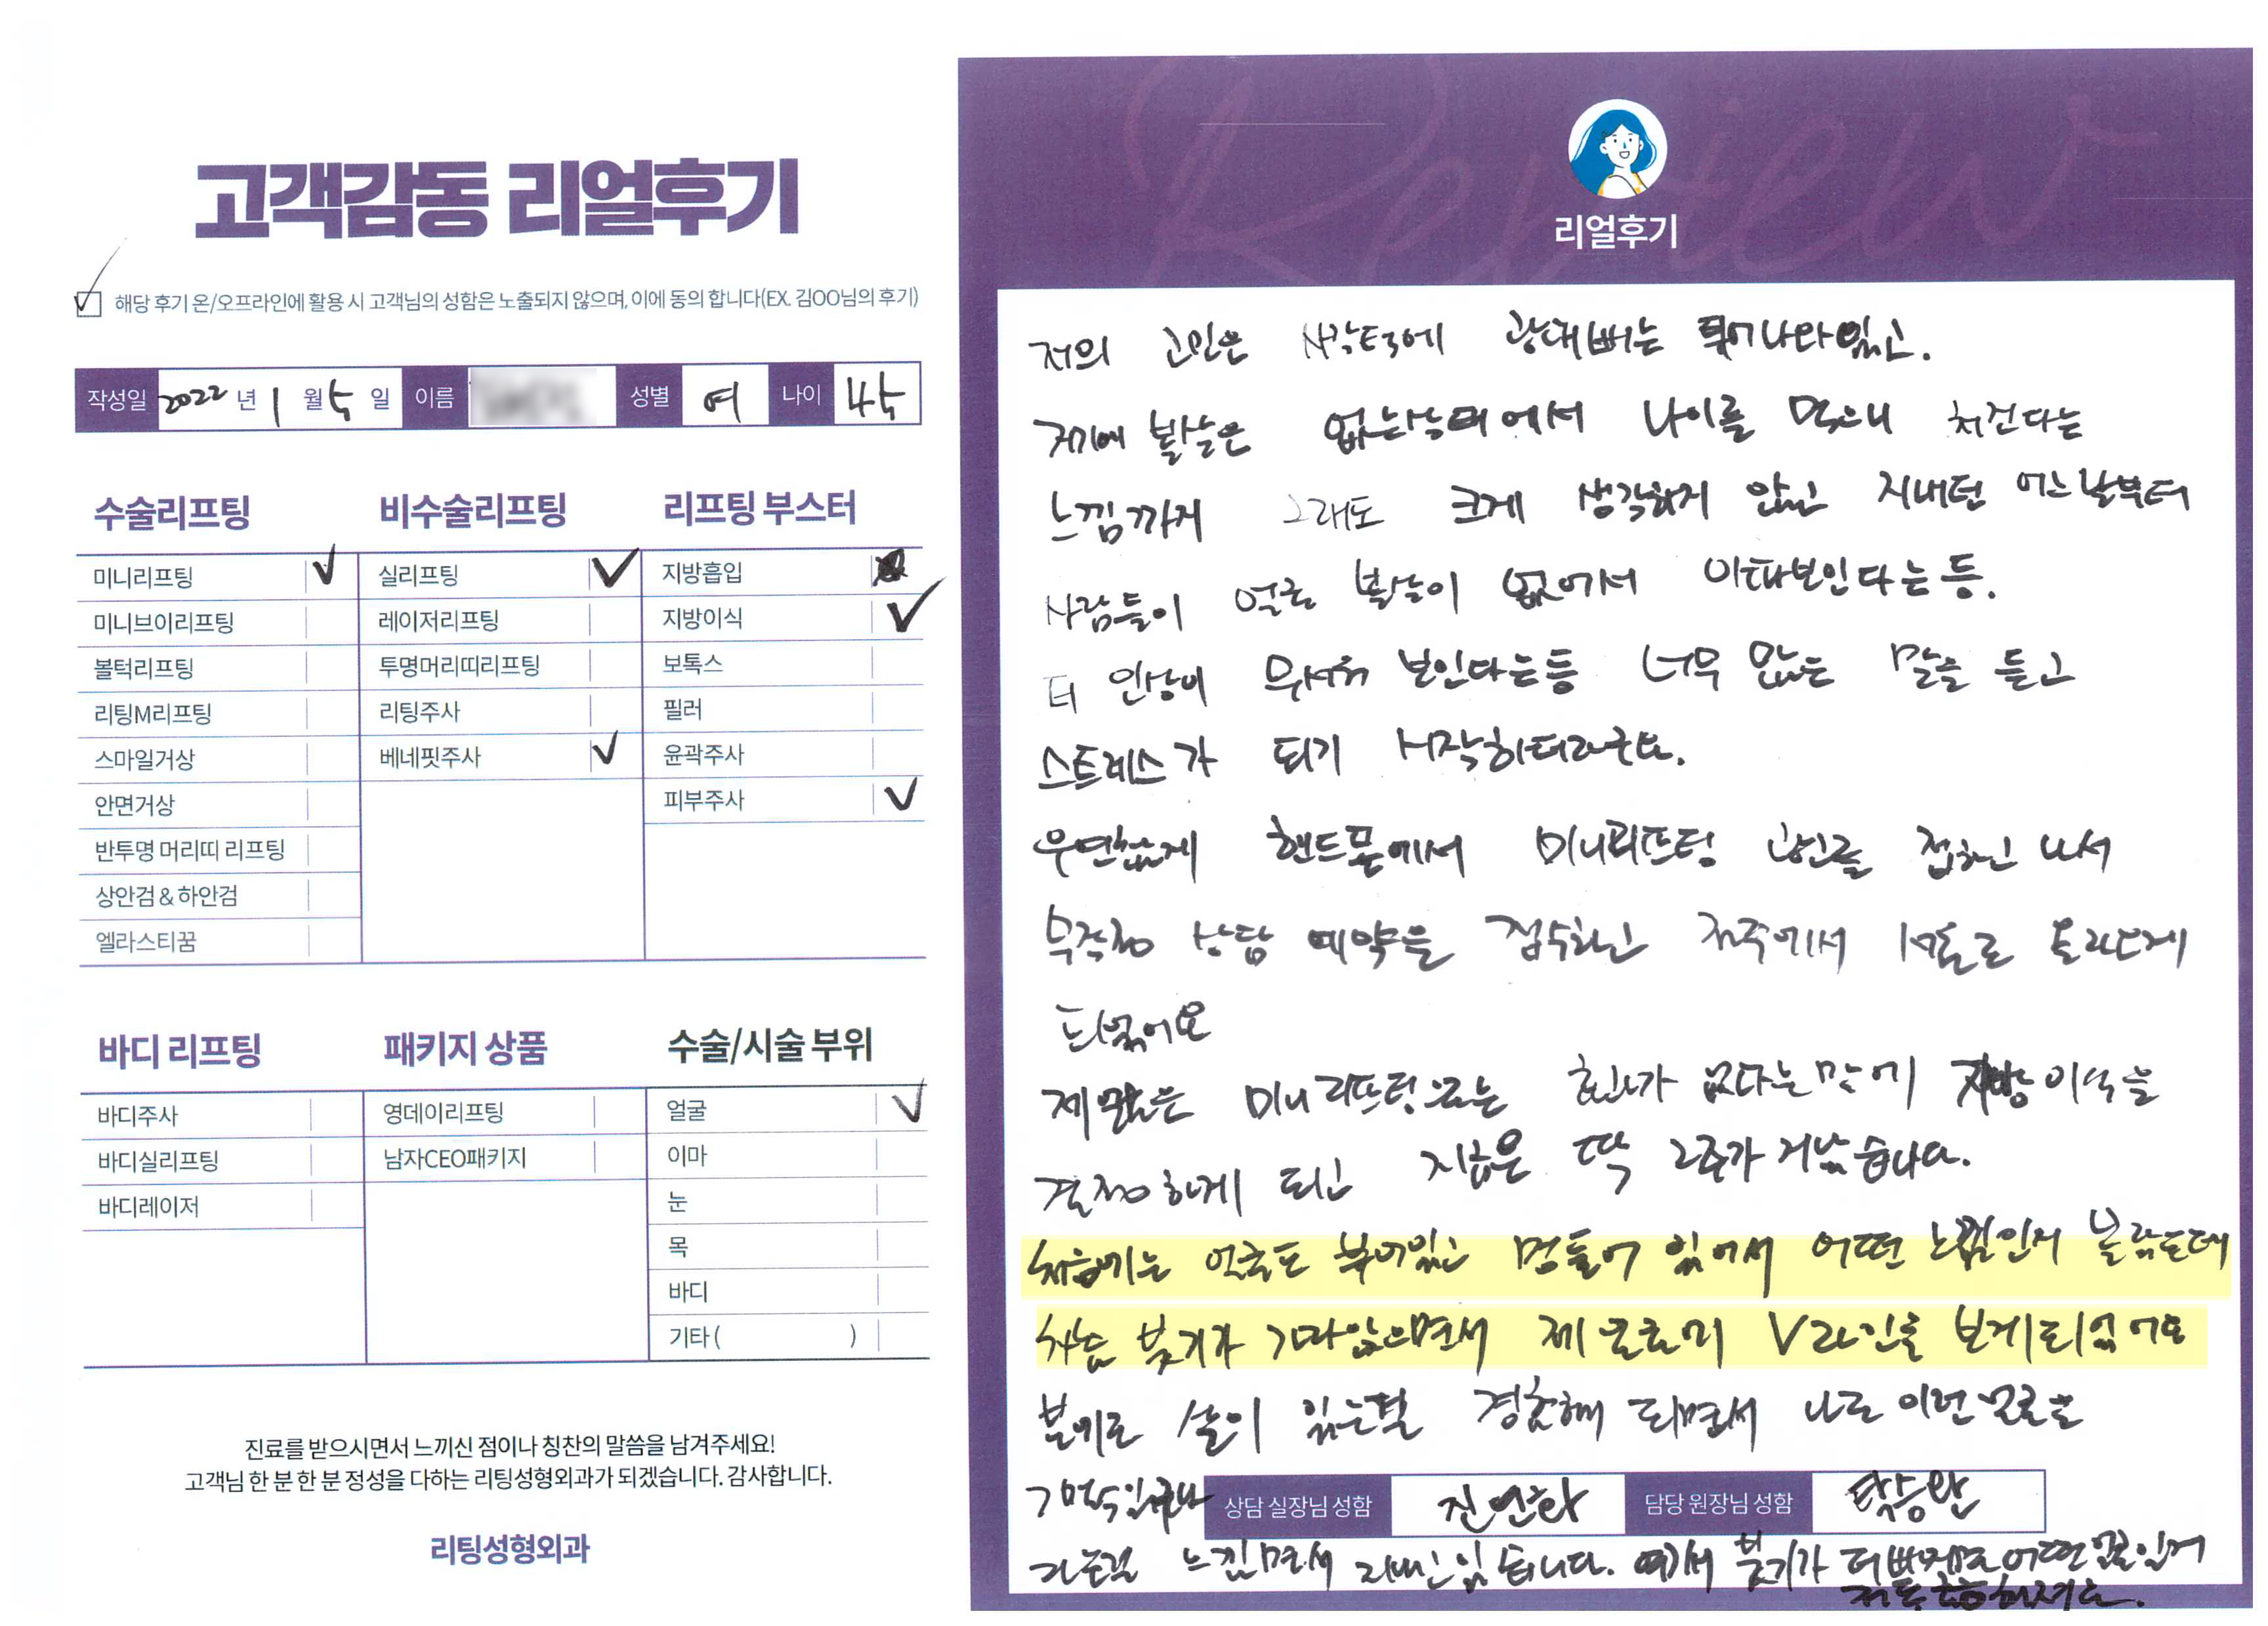 고객감동 리얼후기
해당 후기 온/오프라인에 활용 시 고객님의 성함은 노출되지 않으며, 이에 동의 합니다(EX. 김OO님의 후기)
작성일 2022 년 1 월 5 일 이름 성별 여 나이 45
수술리프팅
미니리프팅
미니브이리프팅
볼턱리프팅
리팅M리프팅
스마일거상
안면거상
반투명 머리띠 리프팅
상안검 & 하안검
엘라스티꿈
비수술리프팅
실리프팅
레이저리프팅
투명머리띠리프팅
리팅주사
베네핏주사
리프팅 부스터
지방흡입
지방이식
보톡스
필러
윤곽주사
피부주사
바디 리프팅
바디주사
바디실리프팅
바디레이저
패키지 상품
영데이리프팅
남자CEO패키지
수술/시술 부위
얼굴
이마
눈
목
바디
기타 ( )
진료를 받으시면서 느끼신 점이나 칭찬의 말씀을 남겨주세요!
고객님 한 분 한 분 정성을 다하는 리팅성형외과가 되겠습니다. 감사합니다.
리팅성형외과
Review
리얼후기
저의 고민은 사각턱에 광대뼈는 튀어나와있고.
거기에 볼살은 없는상태에서 나이를 먹으니 처진다는
느낌까지 그래도 크게 생각하지 않고 지내던 어느날부터
사람들이 얼굴 볼살이 없어서 아파보인다는 등.
더 인상이 무서워 보인다는등 너무 많은 말을 듣고
스트레스가 되기 시작하더라구요.
우연찮게 핸드폰에서 미니리프팅 광고를 접하고 나서
무작정 상담 예약을 접수하고 전주에서 서울로 올라오게
되었어요
제 얼굴은 미니리프팅으로는 효과가 없다는 말에 지방이식을
결정하게 되고 지금은 딱 2주가 지났습니다.
처음에는 얼굴도 부어있고 멍들어 있어서 어떤 느낌인지 몰랐는데
차츰 붓기가 가라앉으면서 제 얼굴의 V라인을 보게되었어요
볼에도 살이 있는걸 경험해 되면서 나도 이런 얼굴을
상담 실장님 성함 진연화 담당 원장님 성함 탁승완
느끼면서 지내고있습니다. 여기서 붓기가 더빠지면 어떤얼굴인지
저도 궁금해져요.